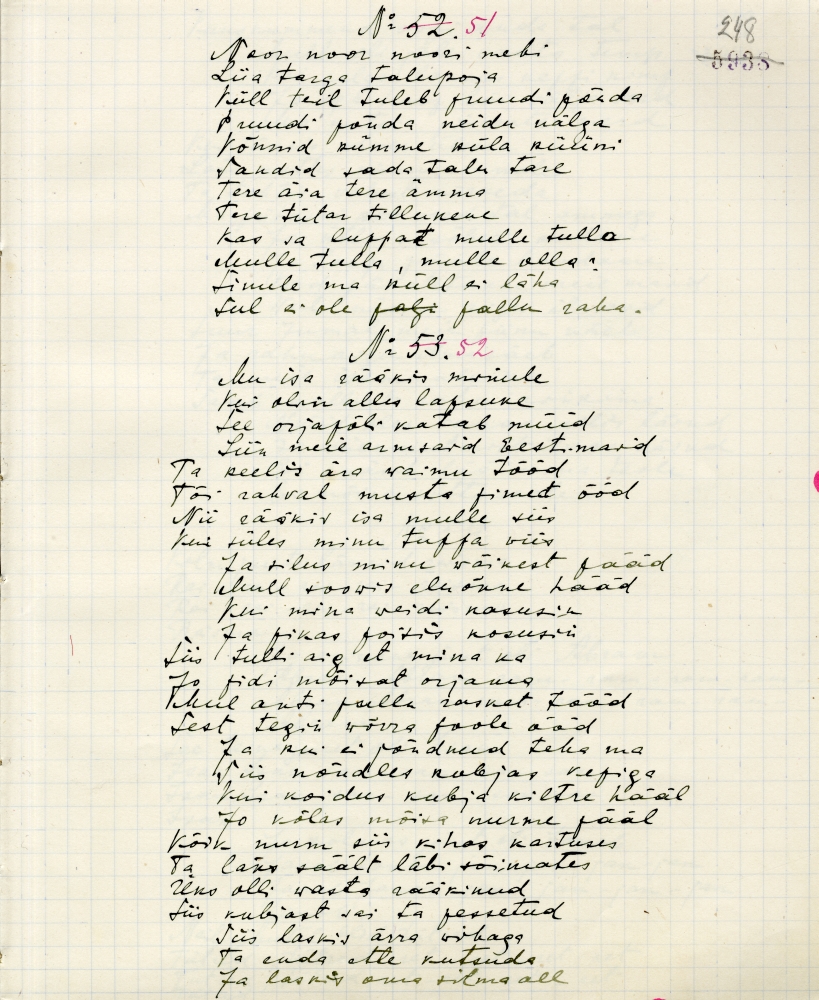 248
5938
№ 52. 51
Noor noor noori mehi
Liia targa talupoja
Küll teil tuleb pruudi põuda
Pruudi põuda neidu nälga
Kõnnid kümme küla küüni
Sandid sada talu tare
Tere äia tere ämma
Tere tütar tillukene
Kas sa luppat mulle tulla
Mulle tulla, mulle olla?
Sinule ma küll ei läha
Sul ei ole palju raha.
№ 53. 52
Mu isa rääkis minule
Kui olin alles lapsuke
See orjapõli katab nüüd
Siin meie armsaid Eestimaid
Ta keelis ära waimu tööd
Tõi rahval musta pimet ööd
Nii rääkis isa mulle siis
Kui süles minu tuppa viis
Ja silus minu wäikest pääd
Mull soowis elu õnne hääd
Kui mina weidi kasusin
Ja pikas poisis kosusin
Siis tulli aig et mina ka
Jo pidi mõisat orjama
Mul anti pallu rasket tööd
Sest tegin wõrra poole ööd
Ja kui ei jõudnud teha ma
Siis nõudles kubjas kepiga
Kui koidus kubja kiltre hääl
Jo kõlas mõisa nurme pääl
Kõik nurm siis kihas kartuses
Ta läks säält läbi sõimates
Üks olli wasta rääkinud
Siis kubjast sai ta pessetud
Siis laskis ärra wihaga
Ta enda ette kutsuda
Ja laskis oma silma all